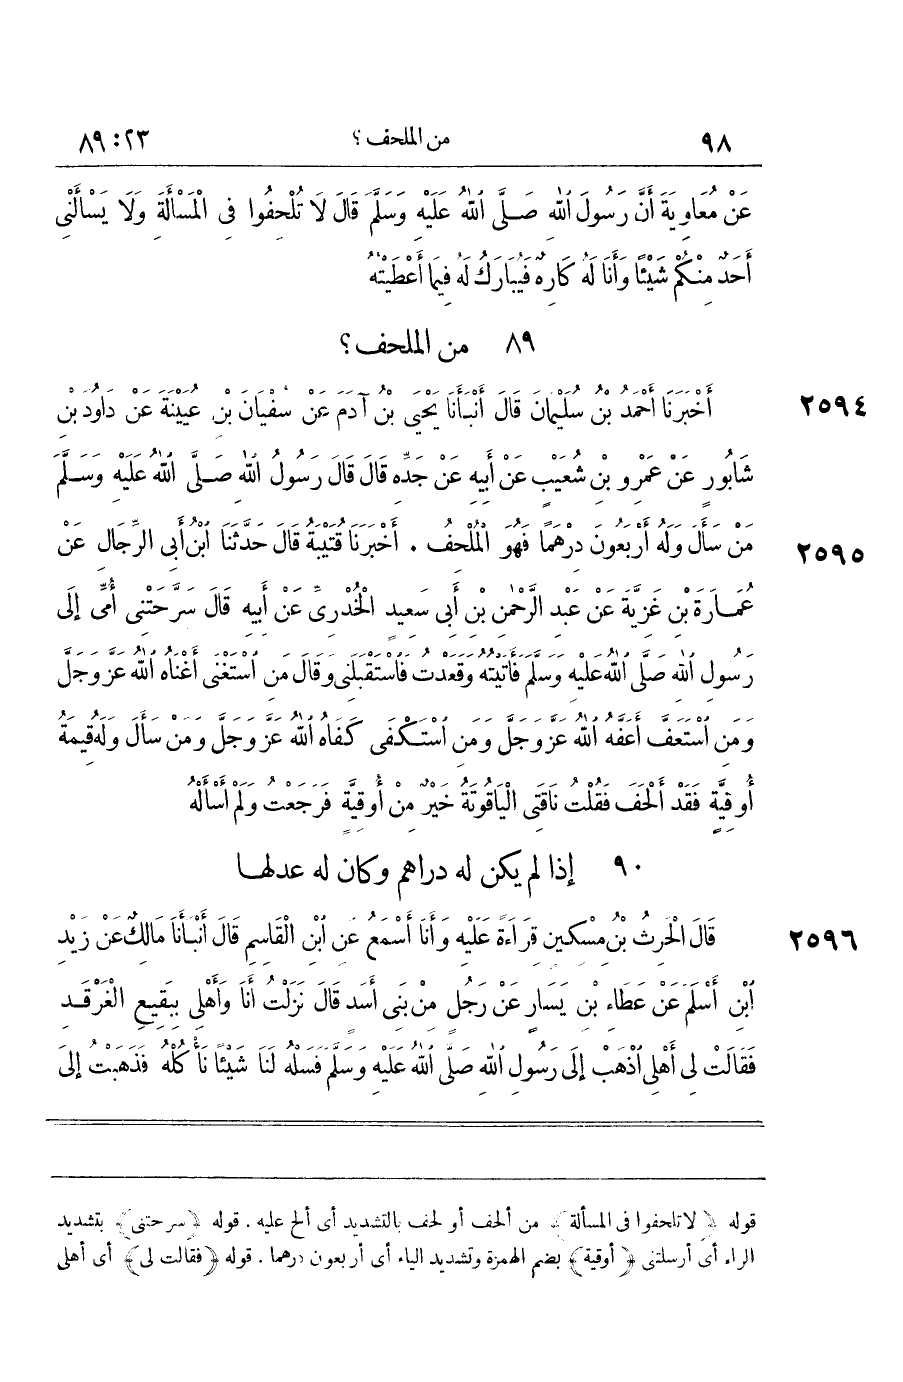 ٩٨ من الملحف ؟ ٢٣:٨٩
عَنْ مُعَاوِيَةَ أَنَّ رَسُولَ اللّٰهِ صَلَّى اللّٰهُ عَلَيْهِ وَسَلَّمَ قَالَ لَا تُلْحِفُوا فِى الْمَسْأَلَةِ وَلَا يَسْأَلْنِى
أَحَدٌ مِنْكُمْ شَيْئًا وَأَنَا لَهُ كَارِهٌ فَيُبَارَكُ لَهُ فِيمَا أَعْطَيْتُهُ
٨٩ من الملحف ؟
٢٥٩٤ أَخْبَرَنَا أَحْمَدُ بْنُ سُلَيْمَانَ قَالَ أَنْبَأَنَا يَحْيَى بْنُ آدَمَ عَنْ سُفْيَانَ بْنِ عُيَيْنَةَ عَنْ دَاوُدَ بْنِ
شَابُورٍ عَنْ عَمْرِو بْنِ شُعَيْبٍ عَنْ أَبِيهِ عَنْ جَدِّهِ قَالَ قَالَ رَسُولُ اللّٰهِ صَلَّى اللّٰهُ عَلَيْهِ وَسَلَّمَ
٢٥٩٥ مَنْ سَأَلَ وَلَهُ أَرْبَعُونَ دِرْهَمًا فَهُوَ الْمُلْحِفُ . أَخْبَرَنَا قُتَيْبَةُ قَالَ حَدَّثَنَا ابْنُ أَبِى الرِّجَالِ عَنْ
عُمَارَةَ بْنِ غَزِيَّةَ عَنْ عَبْدِ الرَّحْمٰنِ بْنِ أَبِى سَعِيدٍ الْخُدْرِىِّ عَنْ أَبِيهِ قَالَ سَرَّحَتْنِى أُمِّى إِلَى
رَسُولِ اللّٰهِ صَلَّى اللّٰهُ عَلَيْهِ وَسَلَّمَ فَأَتَيْتُهُ وَقَعَدْتُ فَاسْتَقْبَلَنِى وَقَالَ مَنِ اسْتَغْنَى أَغْنَاهُ اللّٰهُ عَزَّ وَجَلَّ
وَمَنِ اسْتَعَفَّ أَعَفَّهُ اللّٰهُ عَزَّ وَجَلَّ وَمَنِ اسْتَكْفَى كَفَاهُ اللّٰهُ عَزَّ وَجَلَّ وَمَنْ سَأَلَ وَلَهُ قِيمَةُ
أُوقِيَّةٍ فَقَدْ أَلْحَفَ فَقُلْتُ نَاقَتِى الْيَاقُوتَةُ خَيْرٌ مِنْ أُوقِيَّةٍ فَرَجَعْتُ وَلَمْ أَسْأَلْهُ
٩٠ إذا لم يكن له دراهم وكان له عدلها
٢٥٩٦ قَالَ الْحٰرِثُ بْنُ مِسْكِينٍ قِرَاءَةً عَلَيْهِ وَأَنَا أَسْمَعُ عَنِ ابْنِ الْقَاسِمِ قَالَ أَنْبَأَنَا مَالِكٌ عَنْ زَيْدِ
ابْنِ أَسْلَمَ عَنْ عَطَاءِ بْنِ يَسَارٍ عَنْ رَجُلٍ مِنْ بَنِى أَسَدٍ قَالَ نَزَلْتُ أَنَا وَأَهْلِى بِبَقِيعِ الْغَرْقَدِ
فَقَالَتْ لِى أَهْلِى اذْهَبْ إِلَى رَسُولِ اللّٰهِ صَلَّى اللّٰهُ عَلَيْهِ وَسَلَّمَ فَسَلْهُ لَنَا شَيْئًا نَأْكُلُهُ فَذَهَبْتُ إِلَى
قوله ﴿لا تلحفوا فى المسألة﴾ من ألحف أو لحف بالتشديد أى ألح عليه . قوله ﴿سرحتنى﴾ بتشديد
الراء أى أرسلتنى ﴿أوقية﴾ بضم الهمزة وتشديد الياء أى أربعون درهما . قوله ﴿فقالت لى﴾ أى أهلى